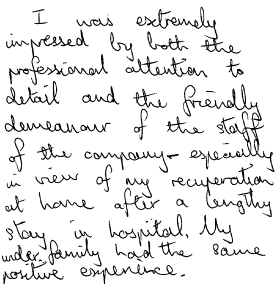 I was extremely
impressed by both the
professional attention to
detail and the friendly
demeanour of the staff
of the company - especially
in view of my recuperation
at home after a lengthy
stay in hospital. My
wider family had the same
positive experience.